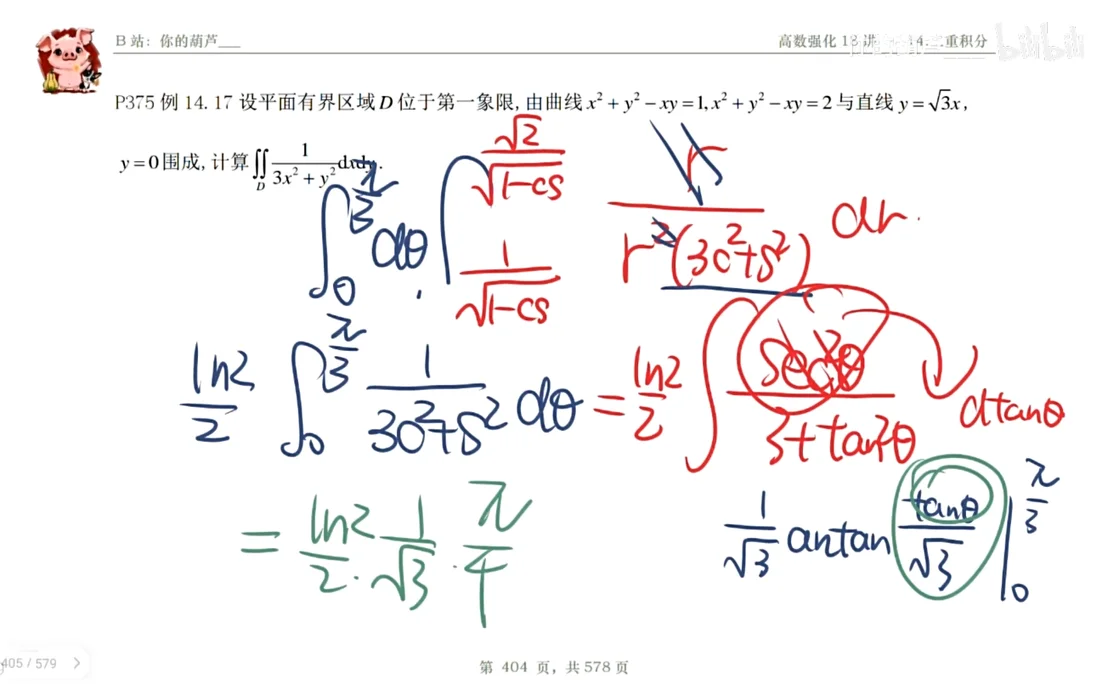 B 站：你的葫芦___
高数强化 18 讲
14. 二重积分
bilibili
P375 例 14.17 设平面有界区域 D 位于第一象限, 由曲线 x² + y² − xy = 1, x² + y² − xy = 2 与直线 y = √3x,
y = 0 围成, 计算 ∬_D 1/(3x² + y²) dxdy.
∫_0^{π/3} dθ · ∫_{1/√(1-cs)}^{√2/√(1-cs)} r/(r²(3c²+s²)) dr.
ln2/2 ∫_0^{π/3} 1/(3c²+s²) dθ = ln2/2 ∫ sec²θ/(3+tan²θ) dtanθ
= ln2/2 · 1/√3 · π/4
1/√3 antan tanθ/√3 |_0^{π/3}
405 / 579 >
第 404 页，共 578 页